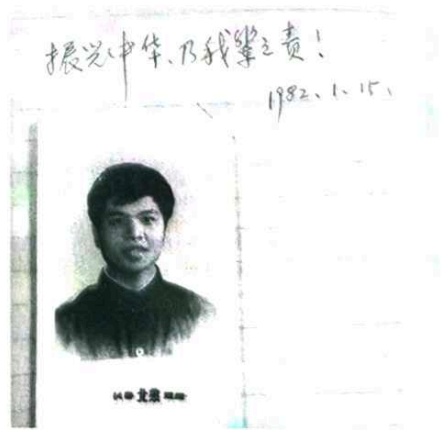 振兴中华、乃我辈之责！
1982.1.15.
北京